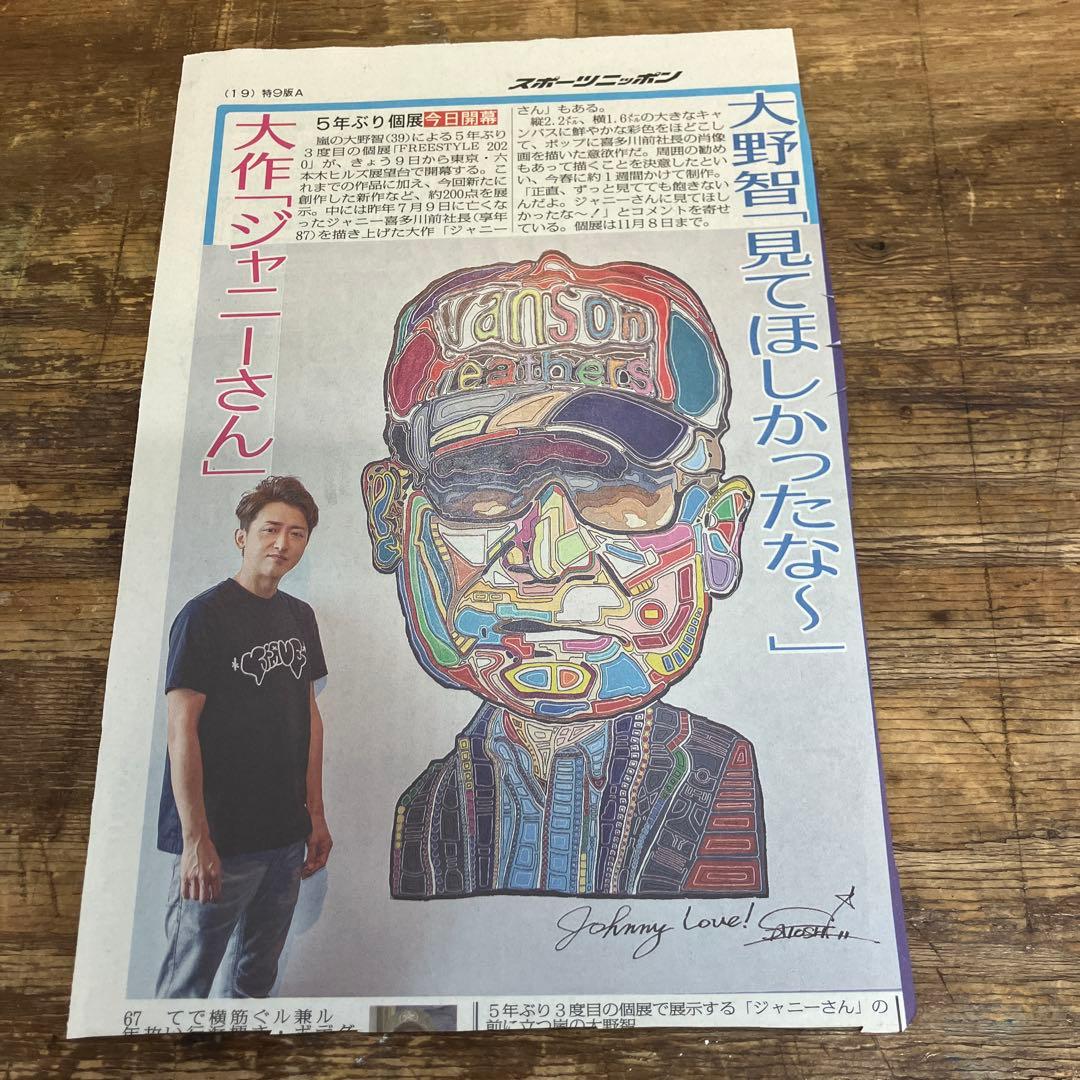 (19) 特9版A
スポーツニッポン
大野智「見てほしかったな〜」
大作「ジャニーさん」
5年ぶり個展 今日開幕
嵐の大野智(39)による5年ぶり
3度目の個展「FREESTYLE 202
0」が、きょう9日から東京・六
本木ヒルズ展望台で開幕する。こ
れまでの作品に加え、今回新たに
創作した新作など、約200点を展
示。中には昨年7月9日に亡くな
ったジャニー喜多川前社長(享年
87)を描き上げた大作「ジャニー
さん」もある。
縦2.2㍍、横1.6㍍の大きなキャ
ンバスに鮮やかな彩色をほどこし
て、ポップに喜多川前社長の肖像
画を描いた意欲作だ。周囲の勧め
もあって描くことを決意したとい
い、今春に約1週間かけて制作。
「正直、ずっと見てても飽きない
んだよ。ジャニーさんに見てほし
かったな〜!」とコメントを寄せ
ている。個展は11月8日まで。
vanson
leathers
Johnny Love! SATOSHI
5年ぶり3度目の個展で展示する「ジャニーさん」の
前に立つ嵐の大野智
67 てで横筋ぐル兼ル